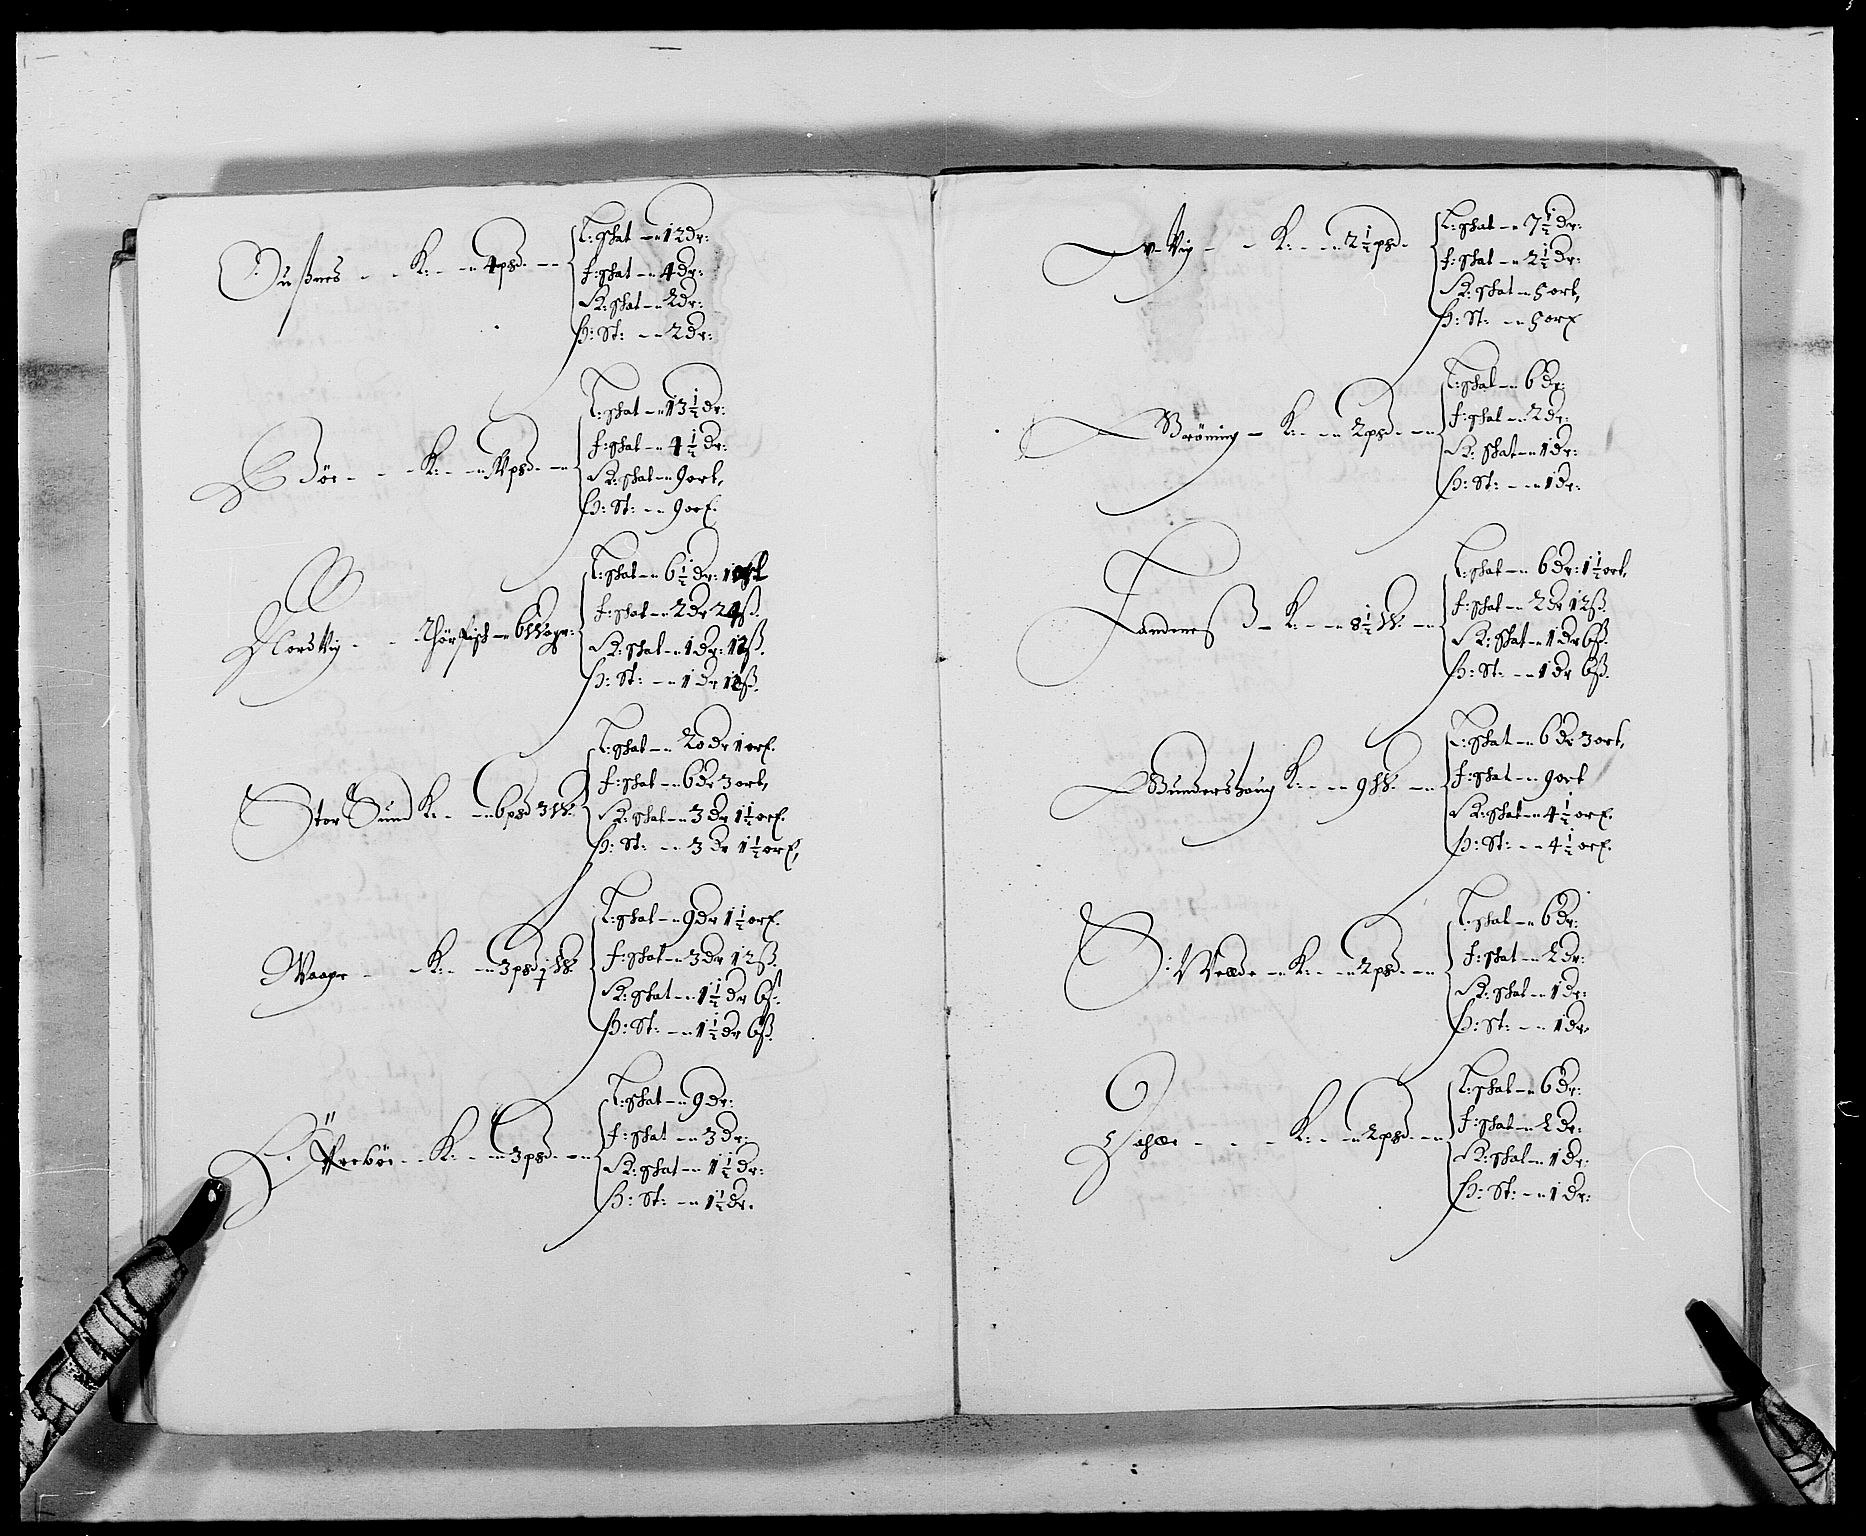 Gußnes - - K: - - 4 psd - -
L: skat - 12 dr:
f: skat - 4 dr:
K: skat - 2 dr:
H: St: - - 2 dr:
Bøe - - K: - -
L: skat - 13 1/2 dr:
f: skat - 4 1/2 dr:
K: skat - 9 ort,
H: St: - - 9 ort.
Nordvig - - Thørfisk - 6 Woger:
L: skat - 6 1/2 dr: 1 ort
f: skat - 2 dr 24 ß.
K: skat - 1 dr: 12 ß.
H: St: - 1 dr 12 ß.
Stor Sund K: - - 6 psd 3 W.
L: skat - 20 dr 1 ort.
f: skat - 6 dr 3 ort,
K: skat - 3 dr 1 1/2 ort.
H: St: - - 3 dr 1 1/2 ort,
Waage - - K: - - 3 psd 1 W.
L: skat - 9 dr 1 1/2 ort.
f: skat - 3 dr 12 ß.
K: skat - 1 1/2 dr 6 ß.
H: St: - - 1 1/2 dr 6 ß.
- K: - - 3 psd - -
L: skat - 9 dr:
f: skat - 3 dr:
K: skat - 1 1/2 dr:
H: St: - - 1 1/2 dr.
Vig - - K: - - 2 1/2 psd -
L: skat - 7 1/2 dr:
f: skat - 2 1/2 dr:
K: skat - 5 ort,
H: St: - - 5 ort
Grøning - K: - - 2 psd - -
L: skat - 6 dr:
f: skat - 2 dr:
K: skat - 1 dr:
H: St: - - 1 dr:
K: - - 8 1/2 W. -
L: skat - 6 dr: 1 1/2 ort,
f: skat - 2 dr 12 ß.
K: skat - 1 dr 6 ß.
H: St: - - 1 dr 6 ß.
Gundershaug K: - - 9 W. -
L: skat - 6 dr 3 ort,
f: skat - 9 ort
K: skat - 4 1/2 ort.
H: St: - - 4 1/2 ort.
S: Welde - K: - - 2 psd - -
L: skat - 6 dr:
f: skat - 2 dr:
K: skat - 1 dr:
H: St: - - 1 dr.
- - - K: - - 2 psd - -
L: skat - 6 dr:
f: skat - 2 dr:
K: skat - 1 dr:
H: St: - 1 dr: